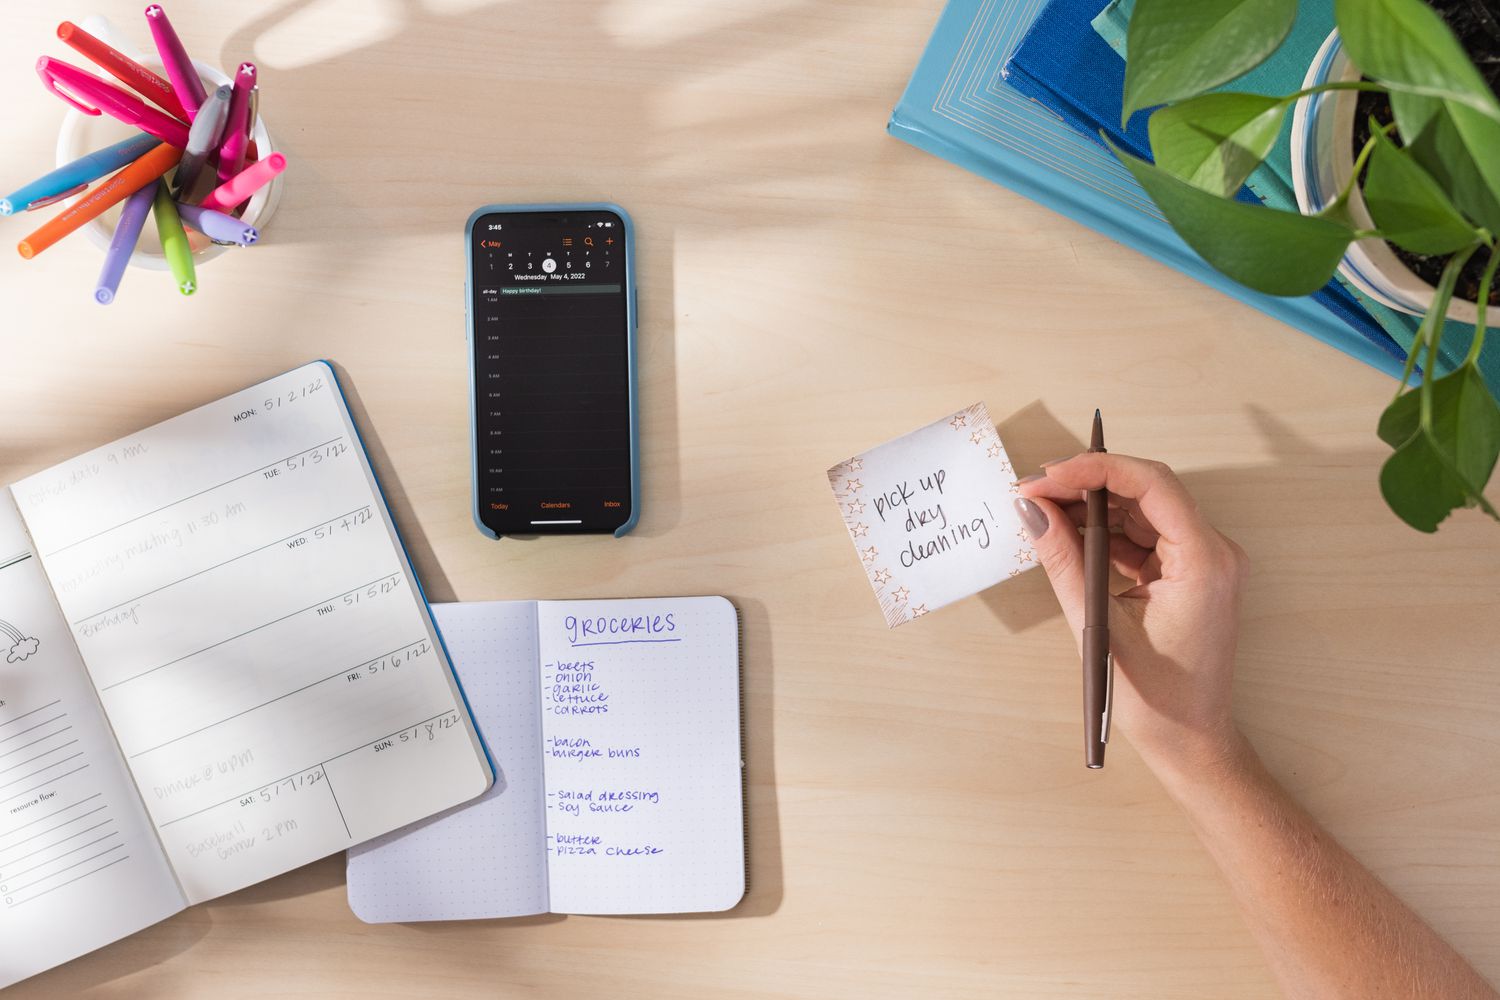 3:45
May
S M T W T F S
1 2 3 4 5 6 7
Wednesday May 4, 2022
all-day Happy birthday!
1 AM
2 AM
3 AM
4 AM
5 AM
6 AM
7 AM
8 AM
9 AM
10 AM
11 AM
Today Calendars Inbox
MON: 5/2/22
Coffee date 9 AM
TUE: 5/3/22
meeting 11:30 AM
WED: 5/4/22
Birthday
THU: 5/5/22
FRI: 5/6/22
Dinner @ 6pm
SAT: 5/7/22
SUN: 5/8/22
Baseball
Game 2pm
resource flow:
groceries
- beets
- onion
- garlic
- lettuce
- carrots
- bacon
- burger buns
- salad dressing
- soy sauce
- butter
- pizza cheese
pick up
dry
cleaning!